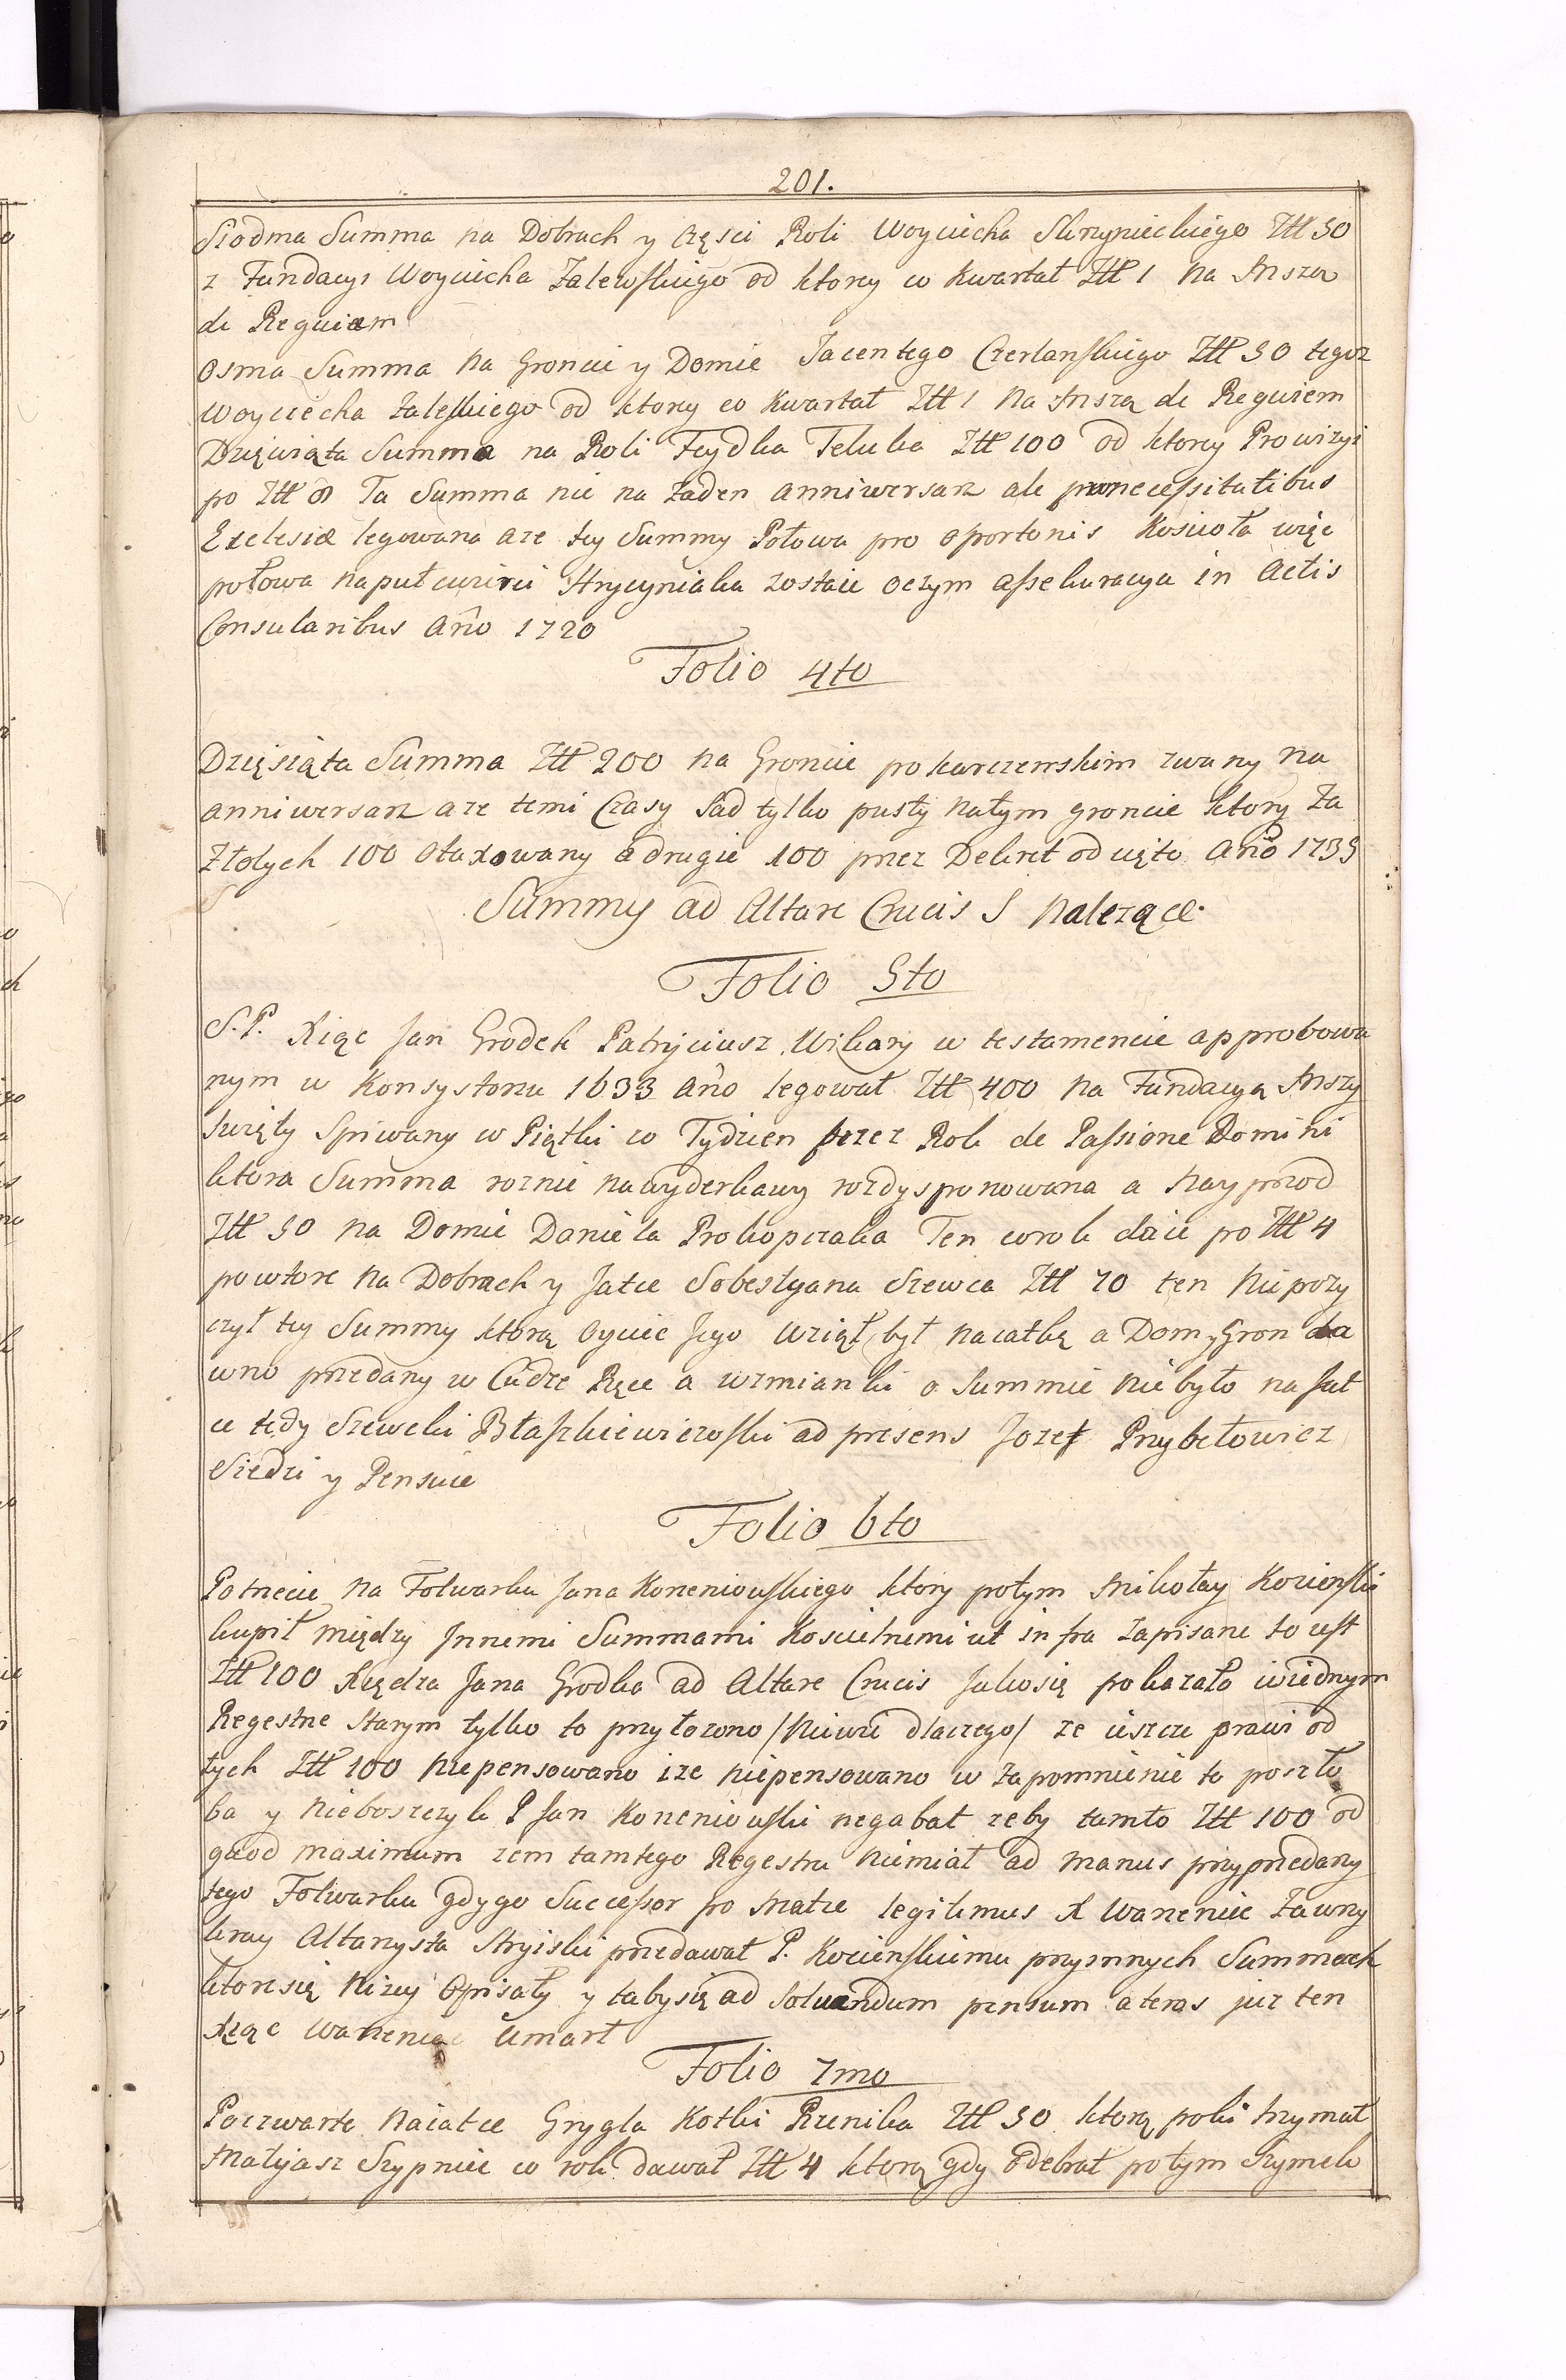 201.
Siodma Summa na Dobrach y częsci Roli Woyciecha Skrzynieckiego Ztt 50
z Fundacyi Woyciecha Zalewskiego od ktorey co kwartał Ztt 1 na Mszą
de Requiem
Osma Summa na Groncie y Domie Jacentego Czerlanskiego Ztt 50 tegoz
Woyciecha Zaleskiego od ktorey co kwartał Ztt 1 na Mszą de Requiem
Dziewiąta Summa na Roli Feydka Teluka Ztt 100 od ktorey Prowizyi
po Ztt 8 Ta Summa nie na Zaden anniwersarz ale pro necessitatibus
Exclesiæ legowana aze tey Summy Połowa pro oportonis Koscioła więc
połowa na puł cwierci Hrycyniaka zostaie oczym assekuracya in Actis
Consularibus Año 1720
Folio 4to
Dziesiąta Summa Ztt 200 na Groncie pokarczemskim zwany na
anniwersarz aze temi Czasy Sad tylko pusty natym groncie ktory Za
Złotych 100 otaxowany a drugie 100 przez Dekret odcięto Año 1735
Summy ad Altare Crucis S nalezące.
Folio 5to
S. P. Xiąc Jan Grodek Patryciusz Wikary w testamencie approbowa
nym w Konsystorzu 1633 Año legował Ztt 400 na Fundacyą Mszy
Swięty Spiwany w Piątki co Tydzien przez Rok de Passione Domini
ktora Summa roznie nawyderkawy rozdysponowana a Nayprzod
Ztt 50 na Domie Daniela Prokopczaka Ten corok daie po Ztt 4
powtore na Dobrach y Jatce Sobestyana Szewca Ztt 70 ten niepozy
czył tey Summy ktorą Oyciec Jego wziął był naiatkę a Dom y Gron da
wno przedany w Cudze Ręce a wzmianki o Summie niebyło na Jat
ce tedy Szewcki Błaszkiewiczoski ad presens Jozef Przybełowicz
Siedzi y Pensuie
Folio 6to
Potrzecie na Folwarku Jana Konieniowskiego ktory potym Mikołay Kozienski
kupił między Innemi Summami Koscielnemi ut infra Zapisane to iest
Ztt 100 Xiędza Jana Grodka ad Altare Crucis Jakosię pokazało wiednym
Regestrze Starym tylko to przyłozono /niewie dlaczego/ ze ieszcze prawi od
tych Ztt 100 niepensowano ize niepensowano w Zapomnienie to poszło
ba y nieboszczyk P Jan Koneniowski negabat zeby tamto Ztt 100 od
quod maximum zem tamtego Regestru niemiał ad manus przyprzedazy
tego Folwarku gdygo Successor po Matce legitimus X Wanieniec Zawny
kray Altarysta Stryiski przedawał P. Kozienskiemu przyinnych Summach
ktoresię nizey Opisały y tabysię ad Soluendum pensum ateras juz ten
Xiąc Wanieniec Umarł
Folio 7mo
Poczwarte naiatce Grygla Kotki Rzeznika Ztt 50 ktorą poki trzymał
Matyasz Szypniec co rok dawał Ztt 4 ktorą gdy Odebrał potym Szymek